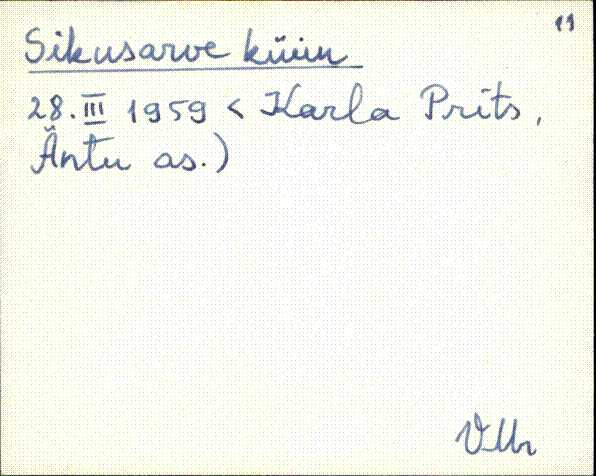 11
Sikusarve küün
28. III 1959 < Karla Prits,
Äntu as.)
VMr